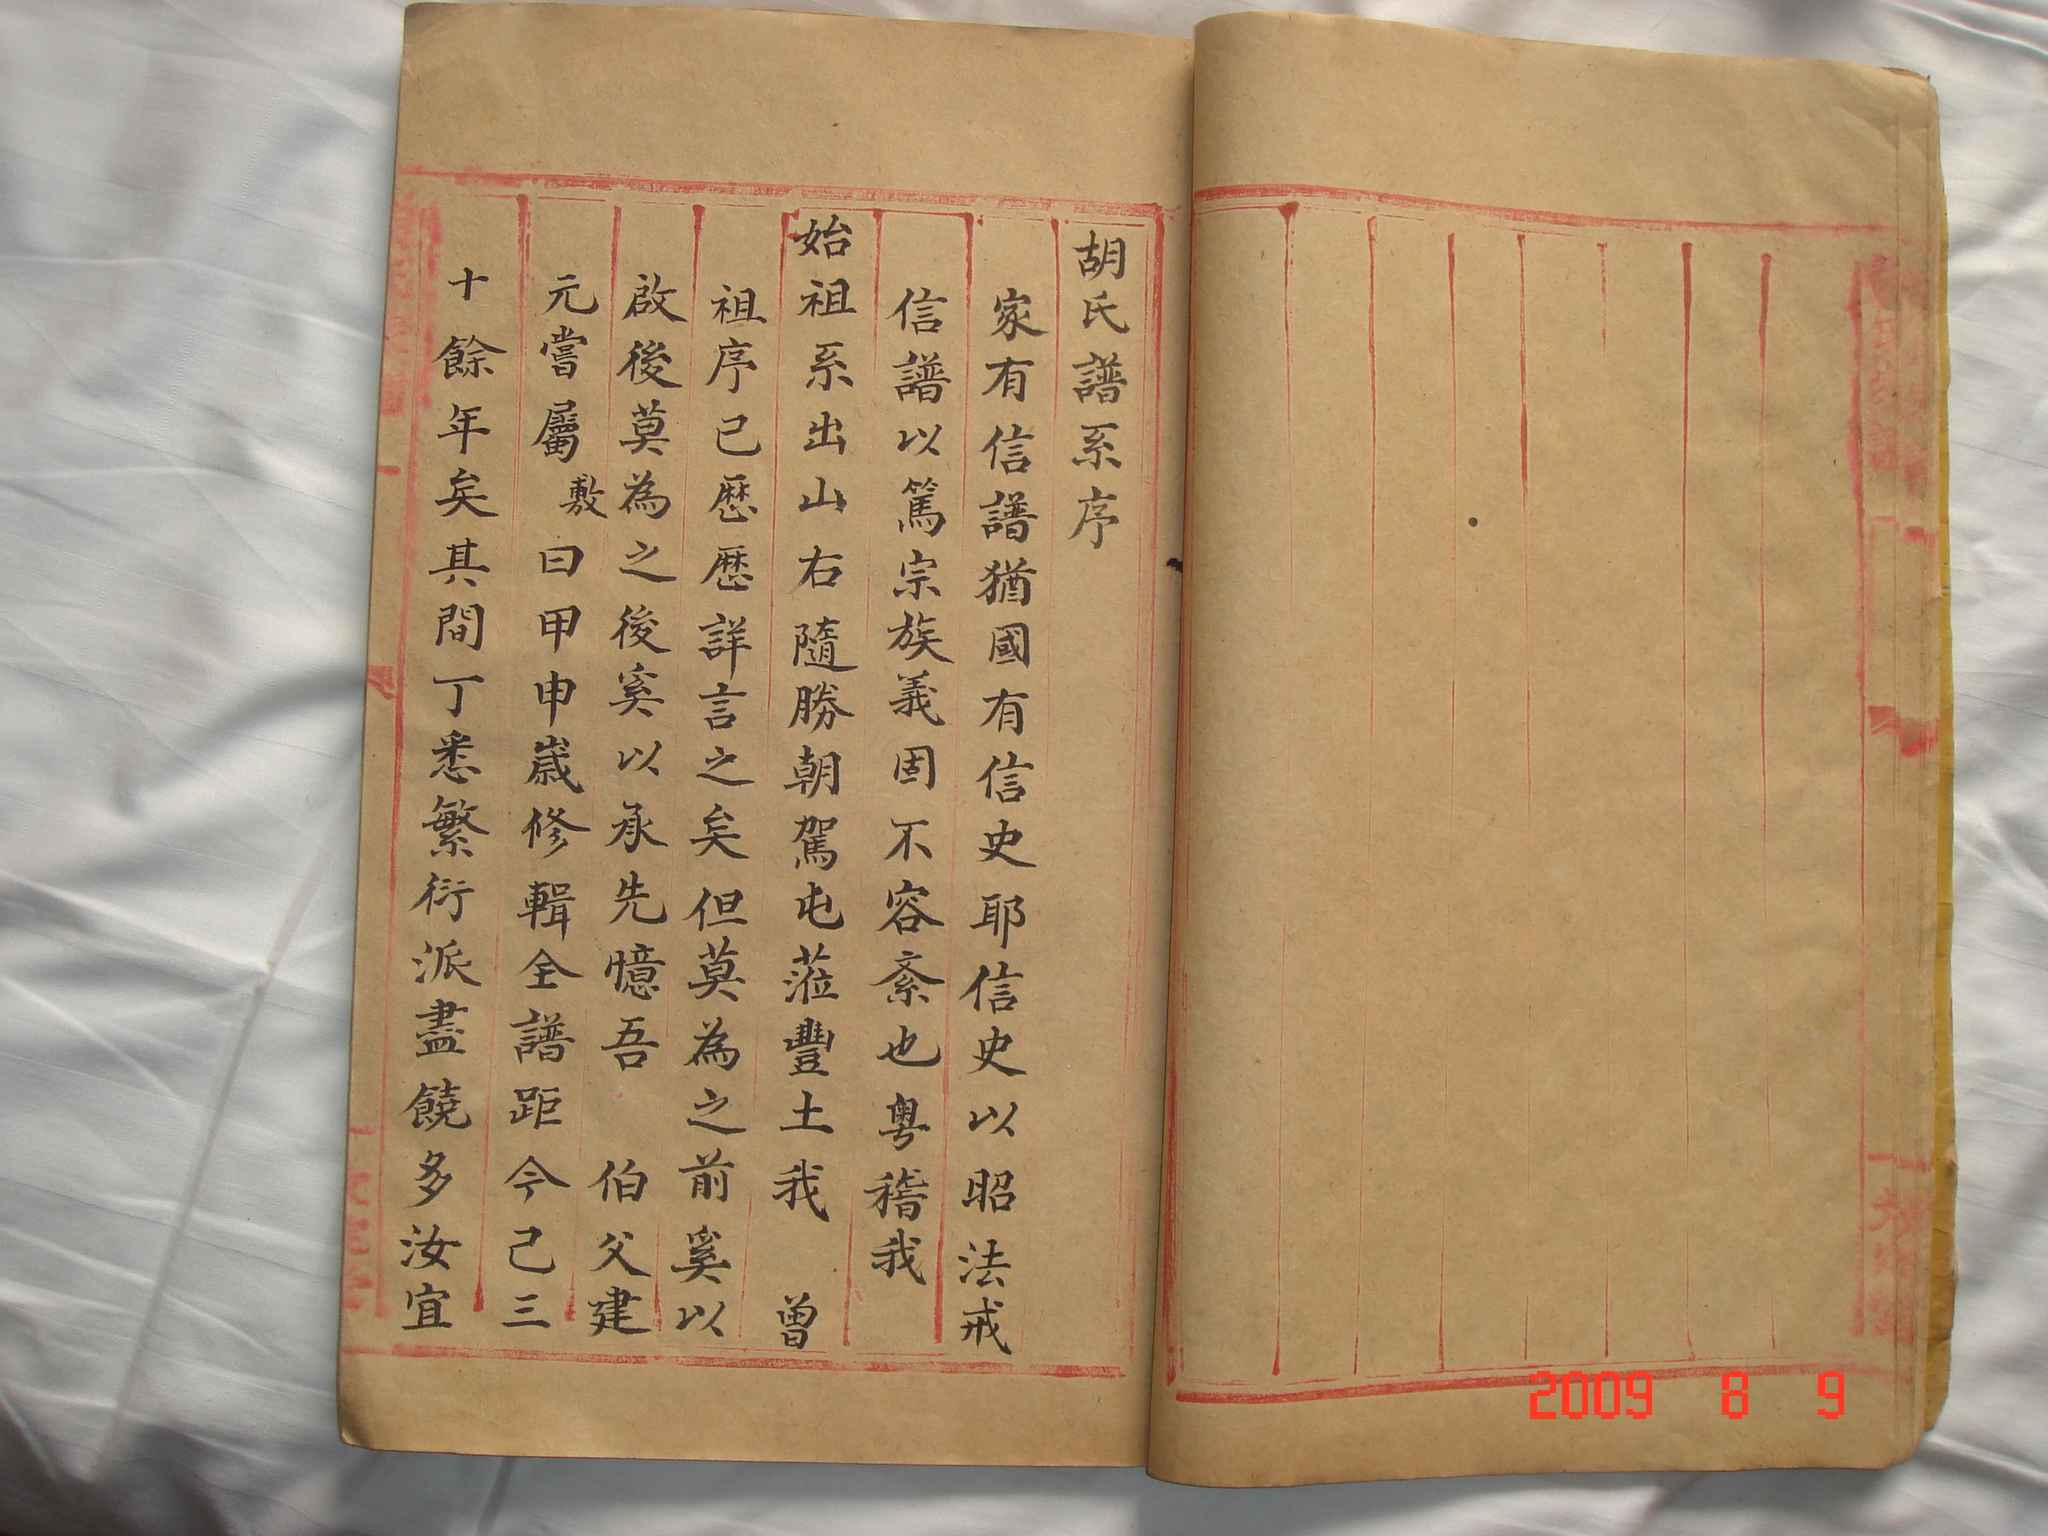 胡氏譜系序
家有信譜猶國有信史耶信史以昭法戒
信譜以篤宗族義固不容紊也粤稽我
始祖系出山右隨勝朝駕屯蒞豐土我　曾
祖序已歷歷詳言之矣但莫為之前奚以
啟後莫為之後奚以承先憶吾　伯父建
元嘗屬敷曰甲申歲修輯全譜距今己三
十餘年矣其間丁悉繁衍派盡饒多汝宜
2009 8 9